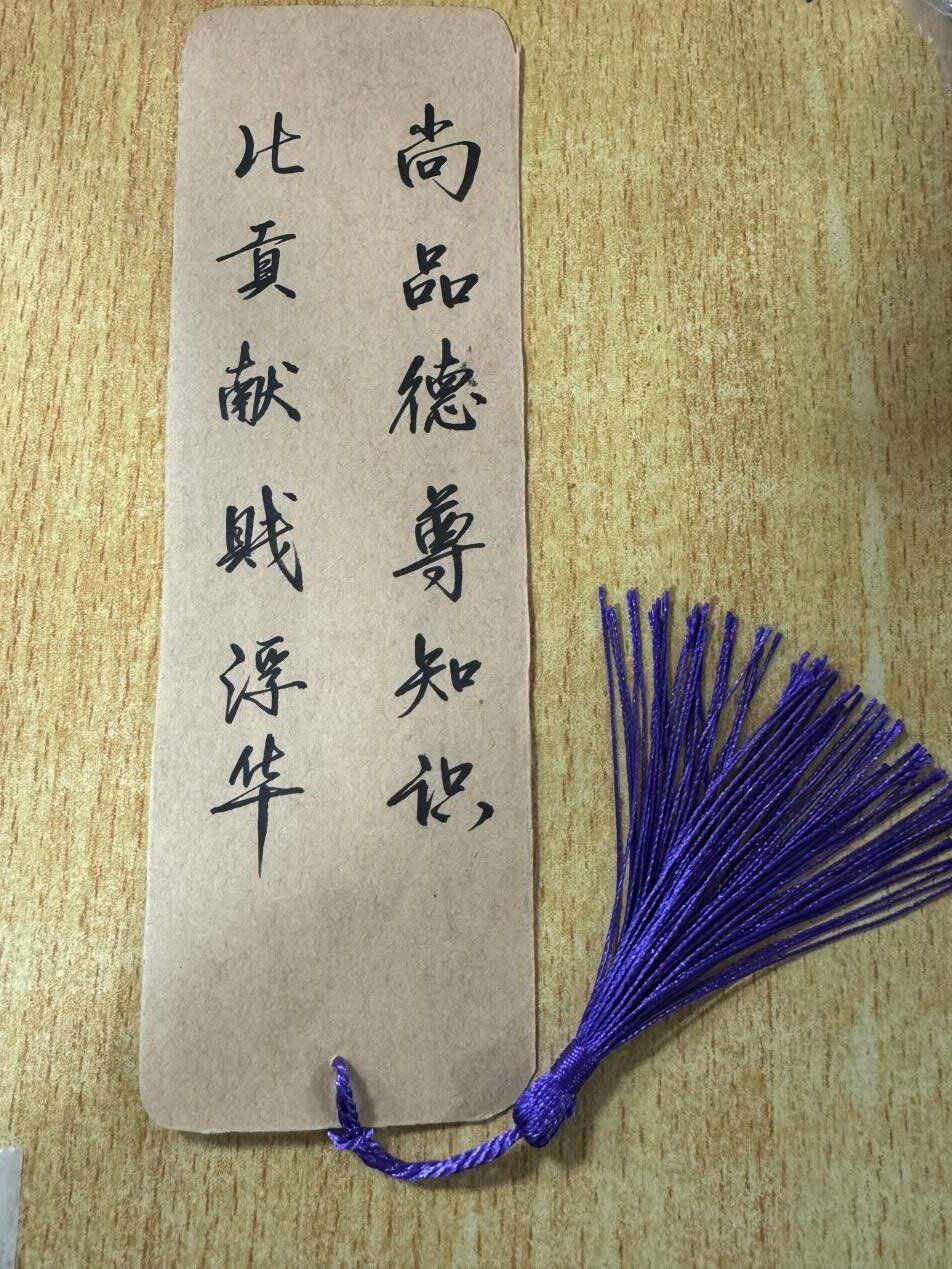 尚品德尊知识
比贡献贱浮华